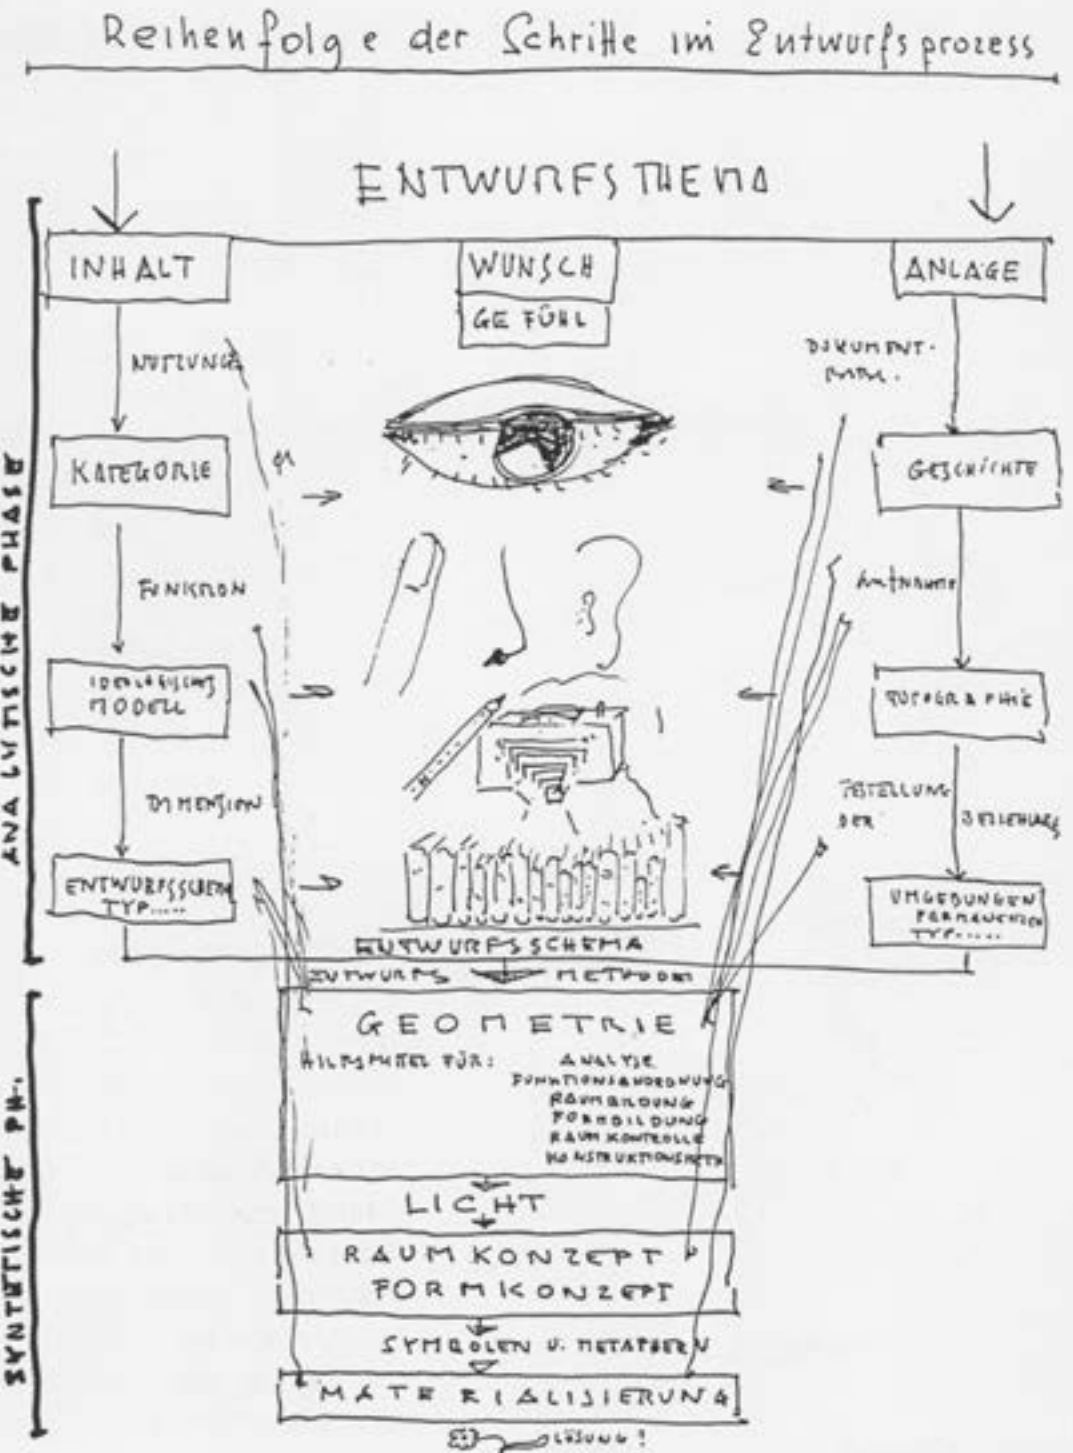 Reihenfolge der Schritte im Entwurfsprozess
ENTWURFSTHEMA
ANALYTISCHE PHASE
INHALT
NUTZUNG
KATEGORIE
FUNKTION
IDEOLOGISCHES
MODELL
DIMENSION
ENTWURFSSCHEMA
TYP.....
WUNSCH
GEFÜHL
ANLAGE
DOKUMENT-
GESCHICHTE
AUFNAHME
TOPOGRAPHIE
DER BEZIEHUNG
UMGEBUNGEN
PERMANENZEN
TYP......
ENTWURFSSCHEMA
ENTWURFS METHODEN
SYNTETISCHE PH.
GEOMETRIE
HILFSMITTEL FÜR: ANALYSE
FUNKTIONSANORDNUNG
RAUMBILDUNG
FORMBILDUNG
RAUMKONTROLLE
LICHT
RAUMKONZEPT
FORMKONZEPT
SYMBOLEN U. METAPHERN
MATERIALISIERUNG
LÖSUNG!